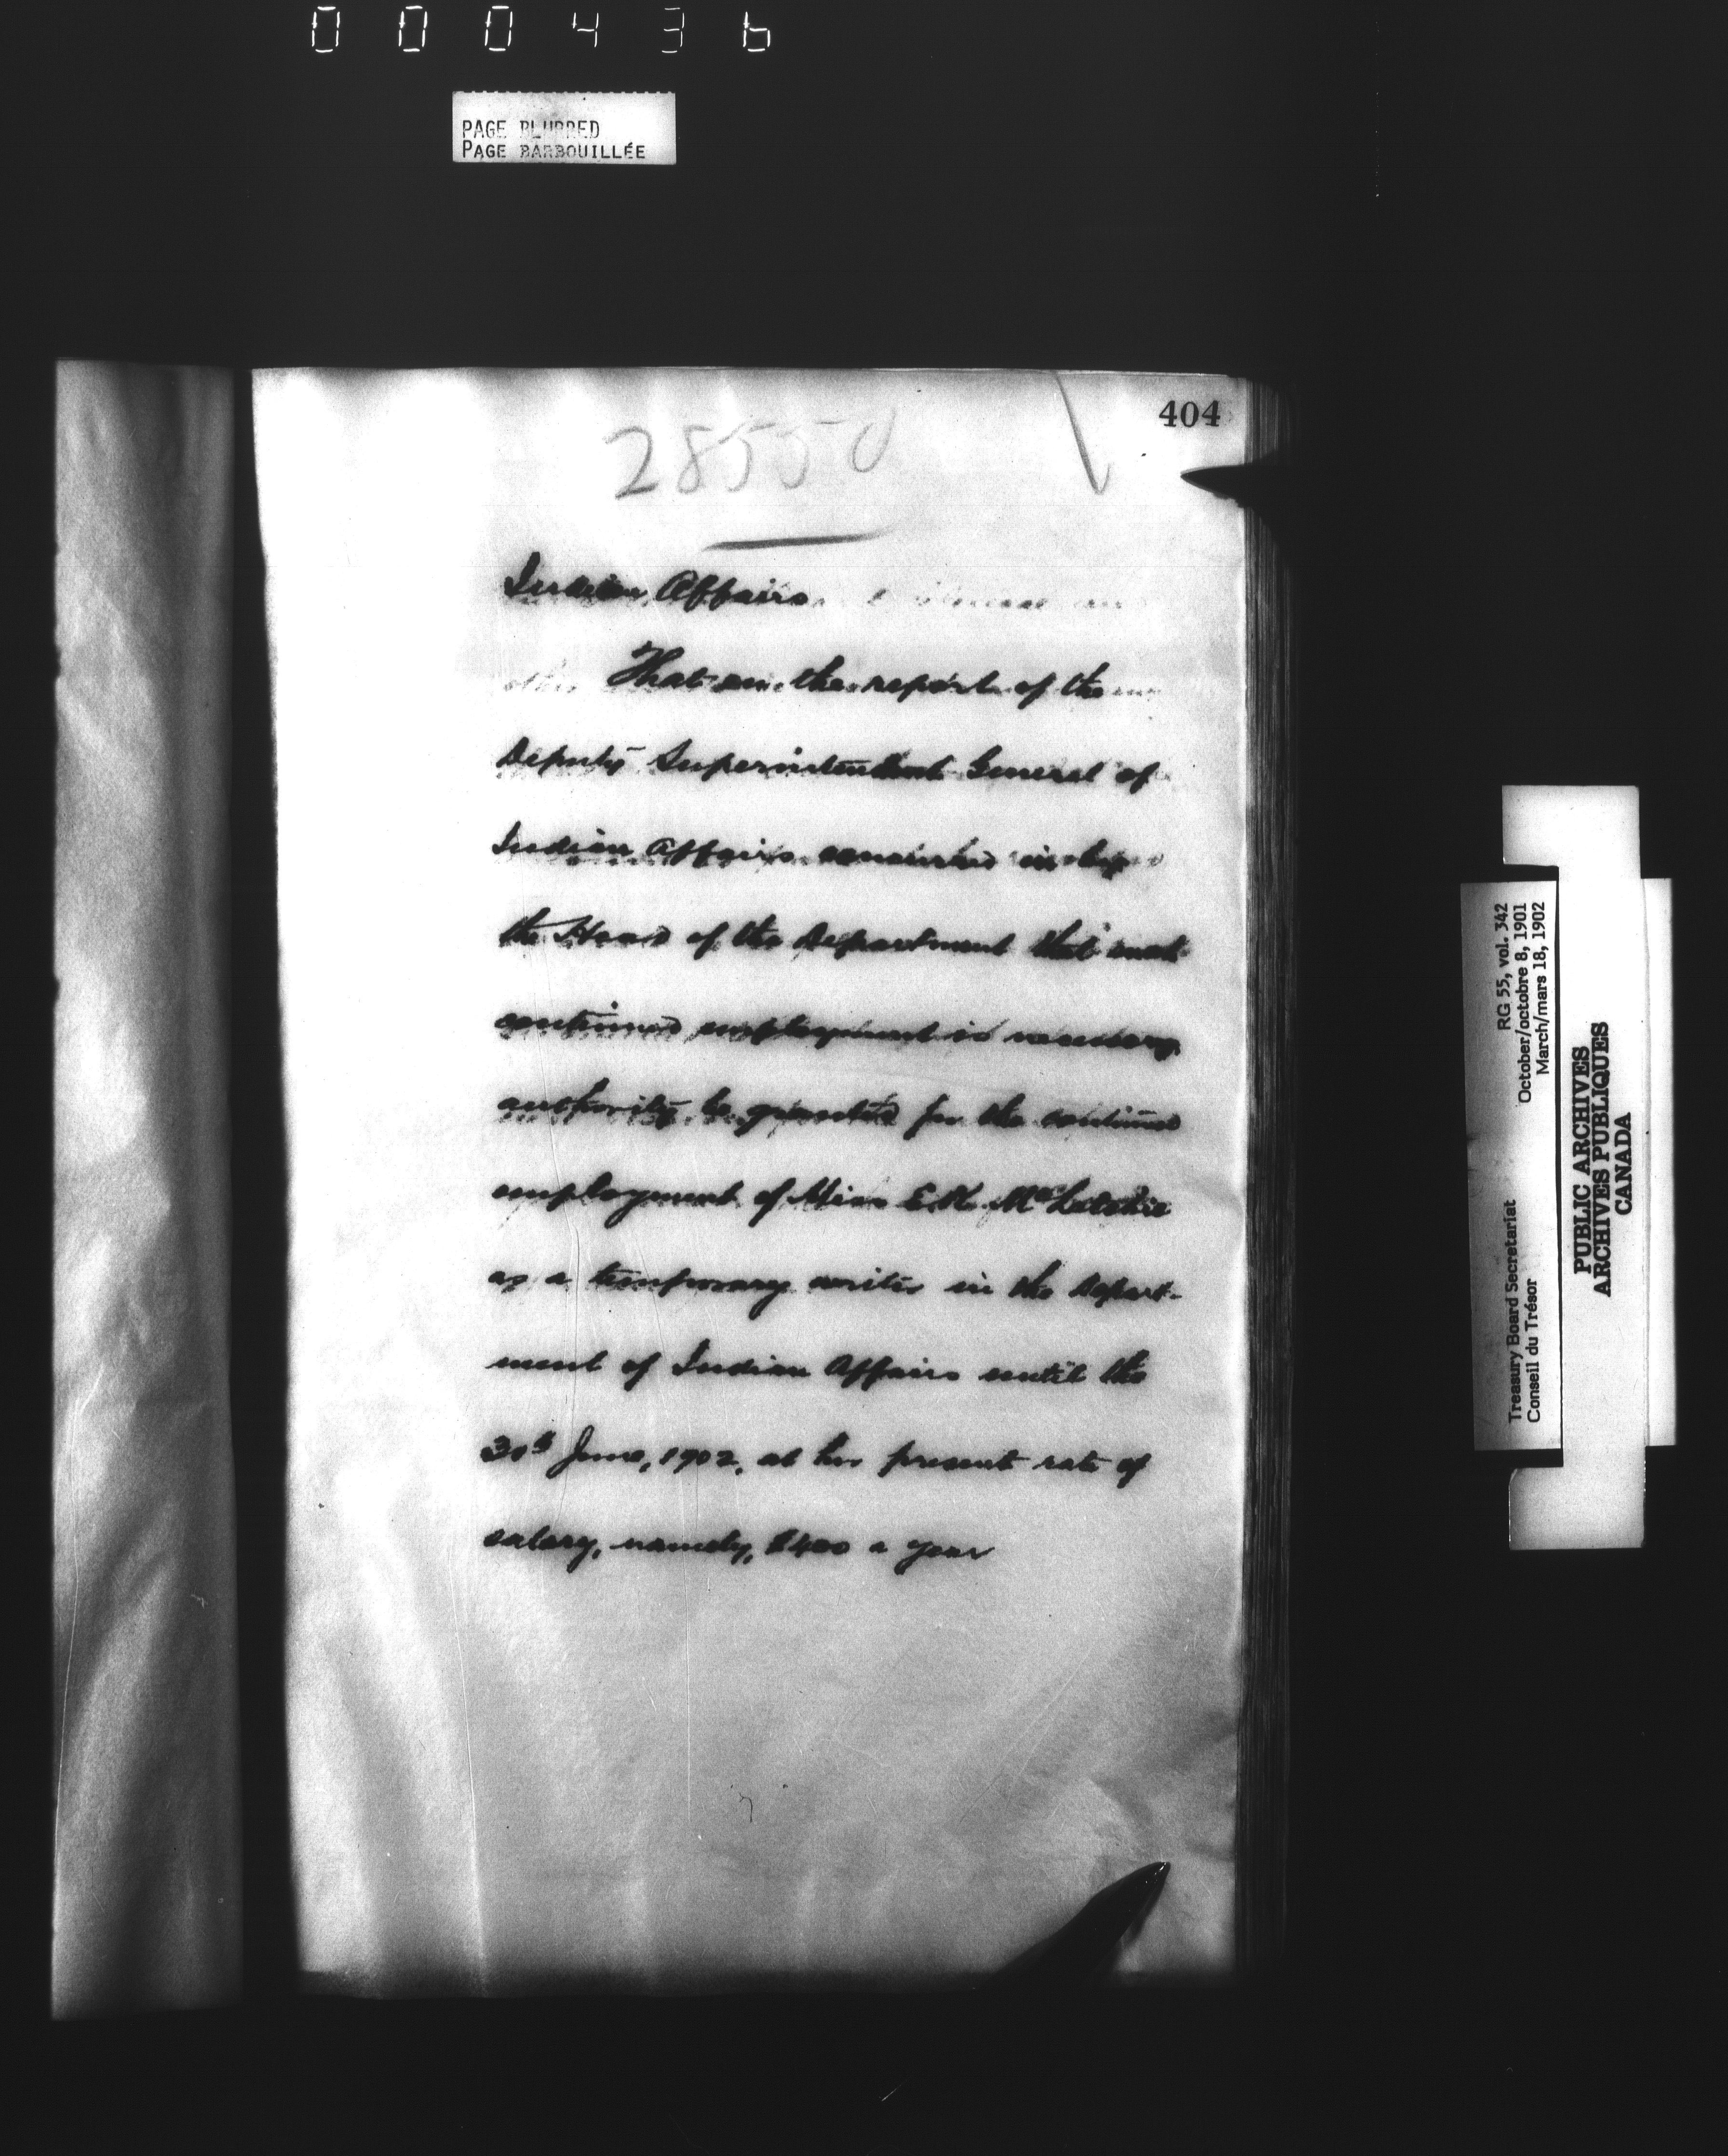 000436
PAGE BLURRED
PAGE BARBOUILLÉE
404
28550
Indian Affairs
That on the report of the
Deputy Superintendent General of
Indian Affairs concurred in by
the Head of the Department that such
continued employment is necessary
authority be granted for the continued
employment of Miss E.H. McLatchie
as a temporary writer in the Depart-
ment of Indian Affairs until the
30th June, 1902, at her present rate of
salary, namely, $400 a year
RG 55, vol. 342
October/octobre 8, 1901
March/mars 18, 1902
Treasury Board Secretariat
Conseil du Trésor
PUBLIC ARCHIVES
ARCHIVES PUBLIQUES
CANADA